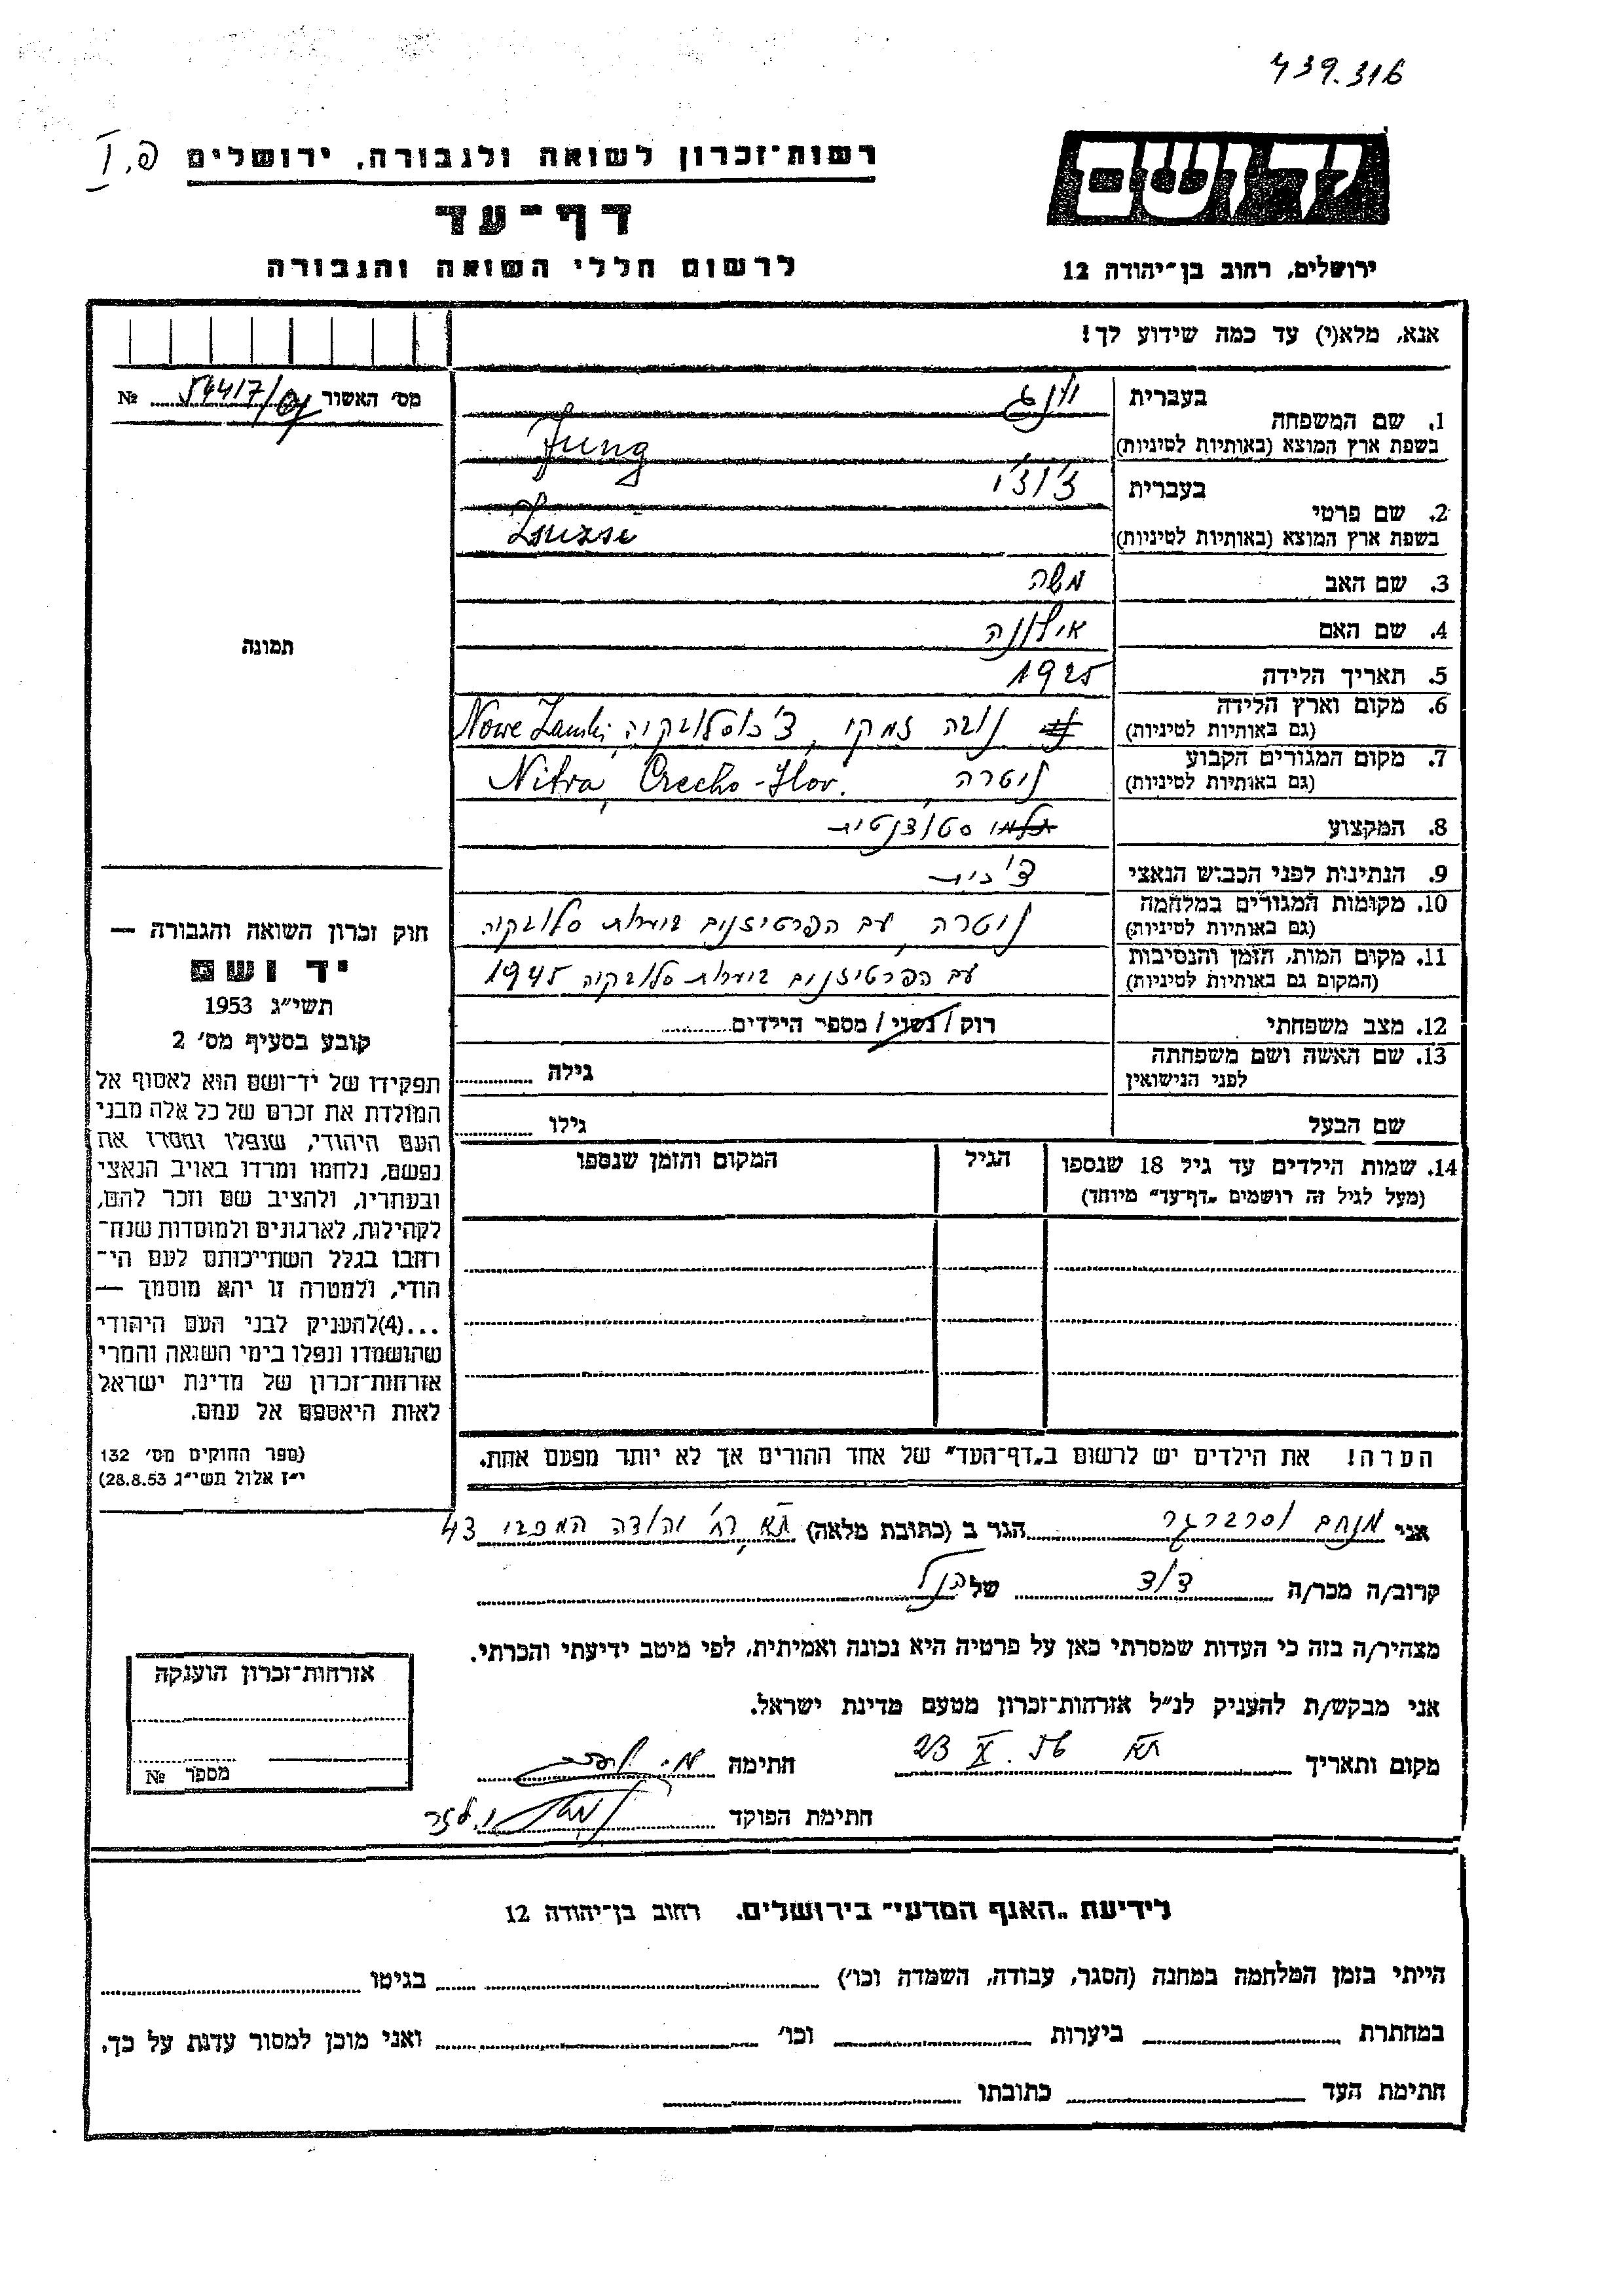 439.316
רשות־זכרון לשואה ולגבורה, ירושלים
דף־עד
לרשום חללי השואה והגבורה
יד ושם
ירושלים, רחוב בן־יהודה 12
אנא, מלא(י) עד כמה שידוע לך!
מס׳ האשור №
1. שם המשפחה
בעברית יונג
בשפת ארץ המוצא (באותיות לטיניות) Jung
2. שם פרטי
בעברית
בשפת ארץ המוצא (באותיות לטיניות) Zsuzsi
3. שם האב משה
4. שם האם אילונה
5. תאריך הלידה 1925
6. מקום וארץ הלידה
(גם באותיות לטיניות) נובה זמקי, צ׳כוסלובקיה, Nowe Zamki
7. מקום המגורים הקבוע
(גם באותיות לטיניות) ניטרה, Nitra, Czecho-Slov.
8. המקצוע סטודנטית
9. הנתינות לפני הכבוש הנאצי צ׳כית
10. מקומות המגורים במלחמה
(גם באותיות לטיניות) ניטרה, עם הפרטיזנים ביערות סלובקיה
11. מקום המות, הזמן והנסיבות
(המקום גם באותיות לטיניות) עם הפרטיזנים ביערות סלובקיה 1945
12. מצב משפחתי רוק/נשוי/מספר הילדים
13. שם האשה ושם משפחתה
לפני הנישואין גילה
שם הבעל גילו
14. שמות הילדים עד גיל 18 שנספו
(מעל לגיל זה רושמים „דף־עד” מיוחד)
הגיל
המקום והזמן שנספו
תמונה
חוק זכרון השואה והגבורה —
יד ושם
תשי״ג 1953
קובע בסעיף מס׳ 2
תפקידו של יד־ושם הוא לאסוף אל
המולדת את זכרם של כל אלה מבני
העם היהודי, שנפלו ומסרו את
נפשם, נלחמו ומרדו באויב הנאצי
ובעוזריו, ולהציב שם וזכר להם,
לקהילות, לארגונים ולמוסדות שנח־
רחבו בגלל השתייכותם לעם הי־
הודי, ולמטרה זו יהא מוסמך —
...(4)להעניק לבני העם היהודי
שהושמדו ונפלו בימי השואה והמרי
אזרחות־זכרון של מדינת ישראל
לאות היאספם אל עמם.
(ספר החוקים מס׳ 132
י״ז אלול תשי״ג 28.8.53)
הערה! את הילדים יש לרשום ב„דף־העד” של אחד ההורים אך לא יותר מפעם אחת.
אני מנחם הגר ב (כתובת מלאה) ת״א, רח׳ יהודה המכבי 43
קרוב/ה מכר/ה דוד של הנ״ל
מצהיר/ה בזה כי העדות שמסרתי כאן על פרטיה היא נכונה ואמיתית, לפי מיטב ידיעתי והכרתי.
אני מבקש/ת להעניק לנ״ל אזרחות־זכרון מטעם מדינת ישראל.
מקום ותאריך ת״א 23 חתימה
חתימת הפוקד
אזרחות־זכרון הוענקה
מספר №
לידיעת „האגף המדעי” בירושלים. רחוב בן־יהודה 12
הייתי בזמן המלחמה במחנה (הסגר, עבודה, השמדה וכו׳) בגיטו
במחתרת ביערות וכו׳ ואני מוכן למסור עדות על כך.
חתימת העד כתובתו